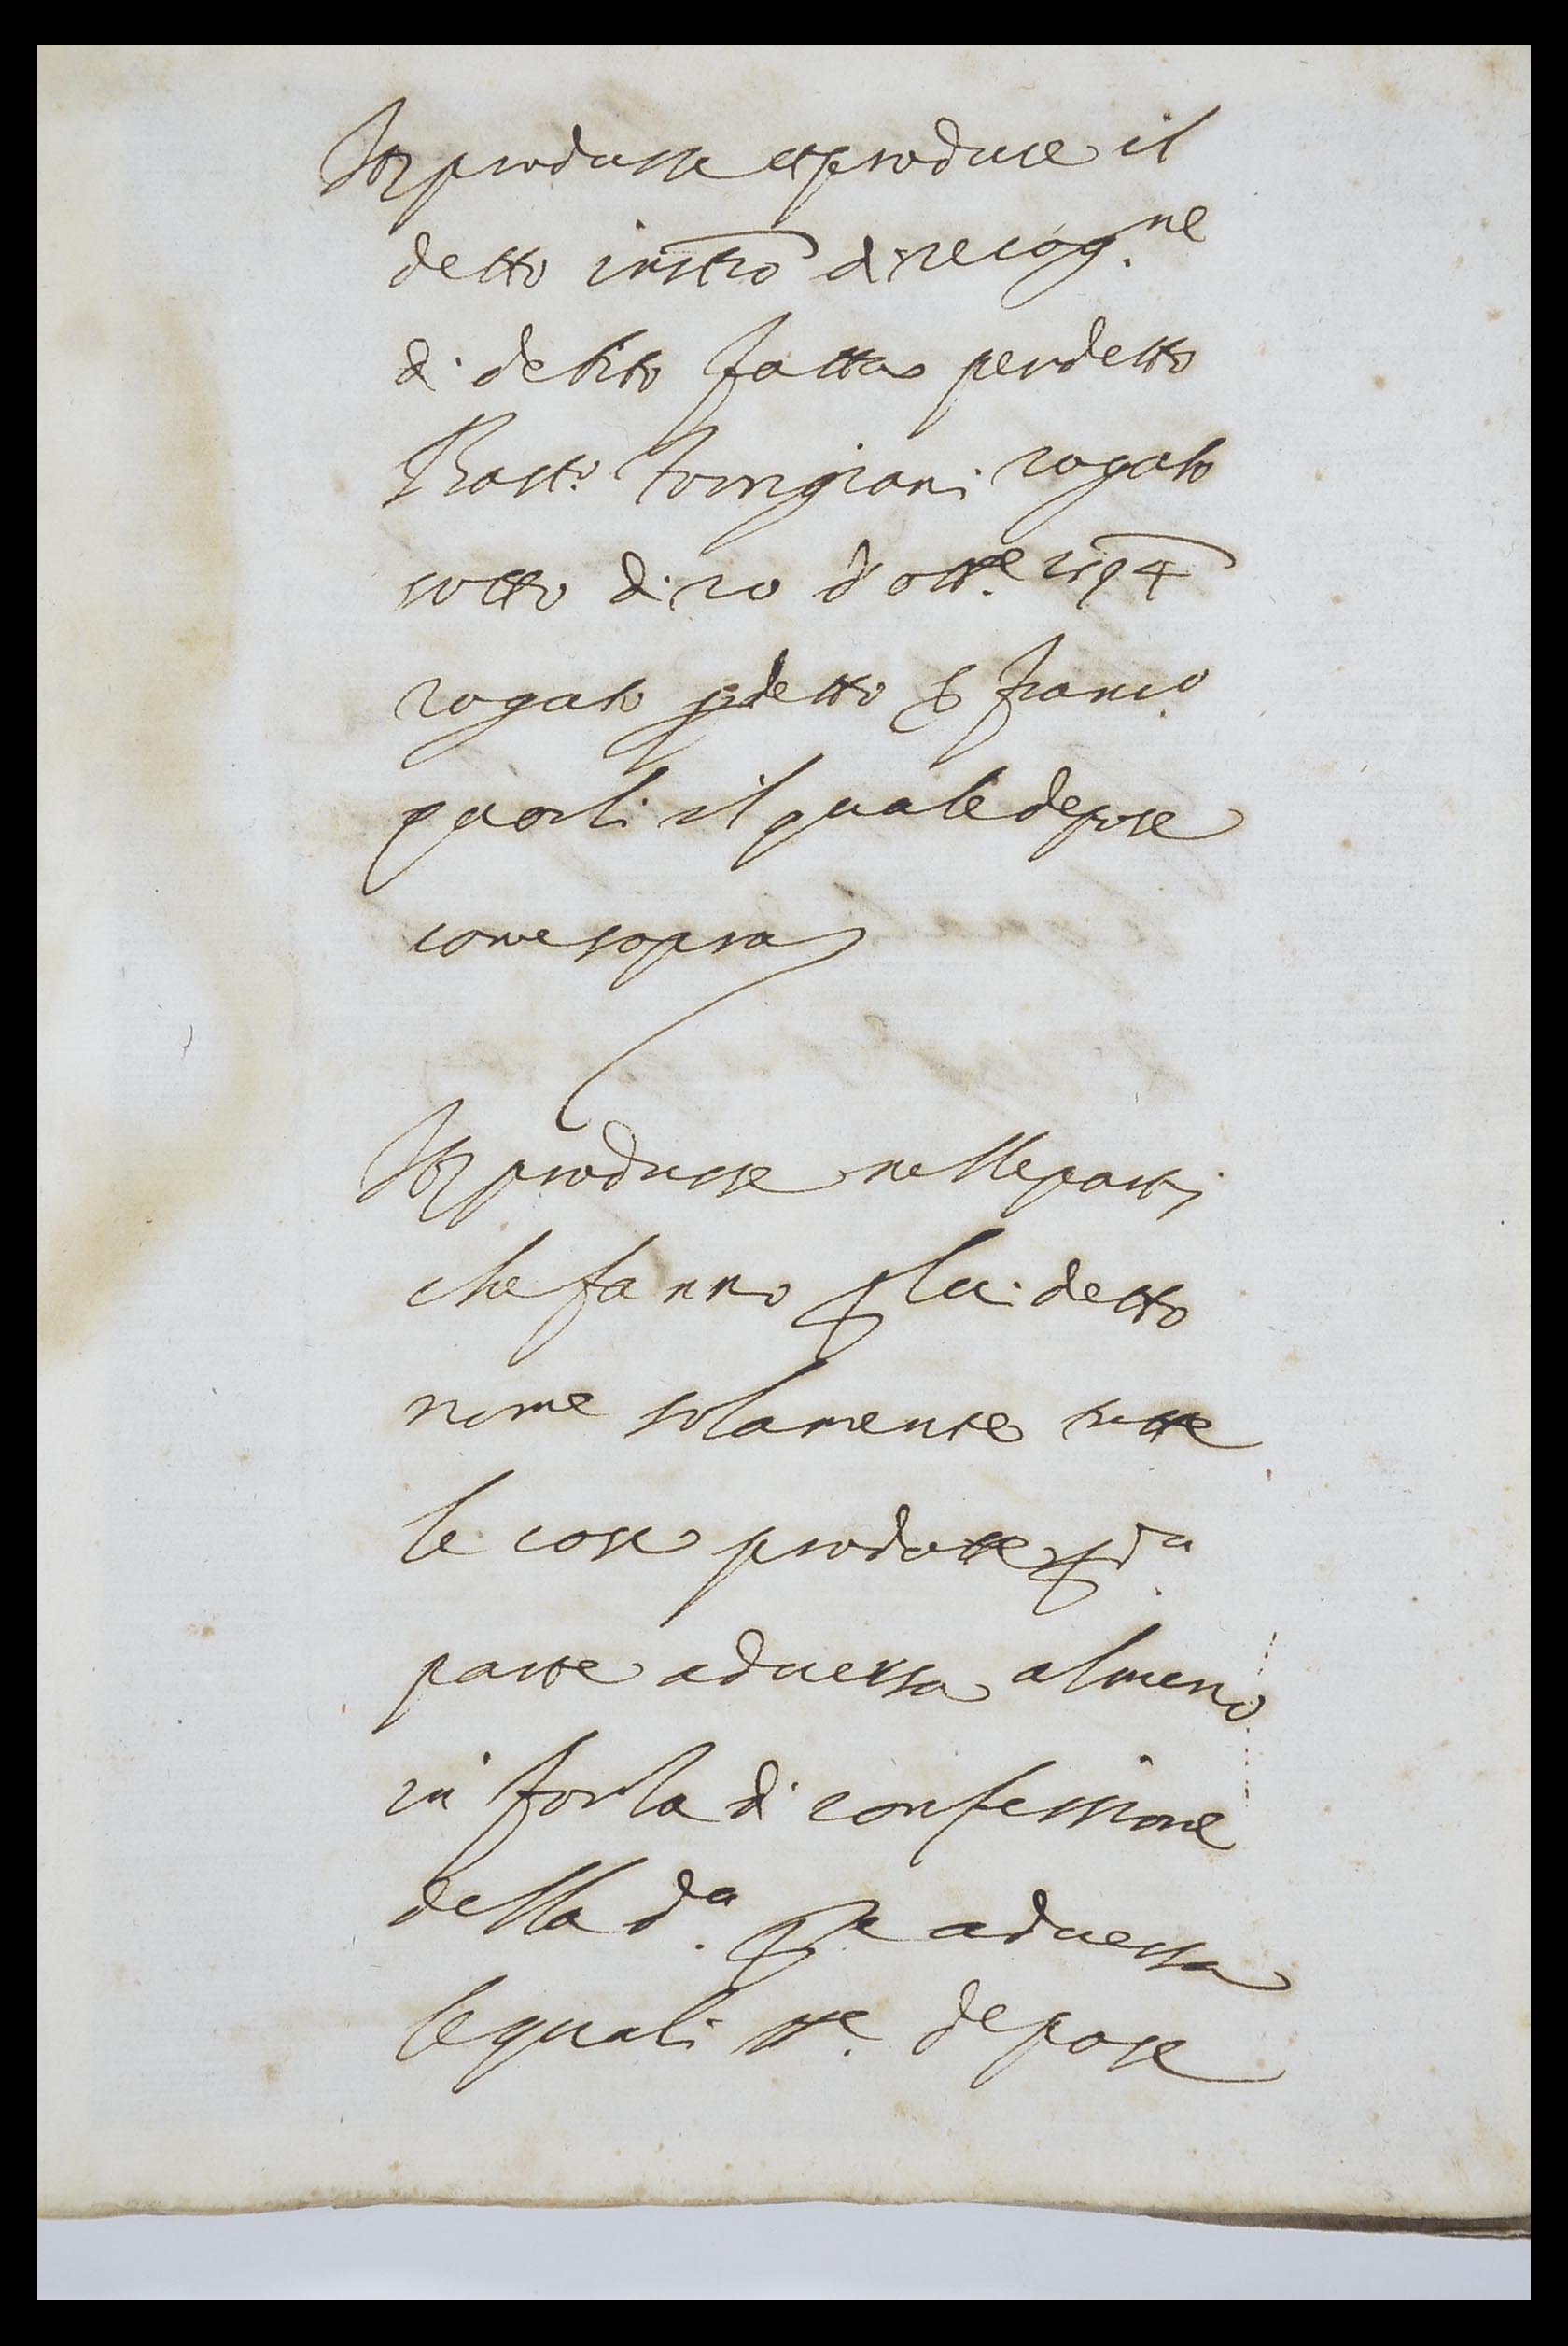 Itz produsse et produce il
detto instro di recog.ne
di debito fatta per detto
Bast.o Torrigiani rogato
sotto di 20 d'ott.e 1594
rogato p detto S Franc.o
il quale depose
come sopra
Itz produsse nelle parti
che fanno p lui detto
nome solamente tutte
le cose prodotte p d.a
parte aduersa almeno
in forza di confessione
della d.a p.te aduersa
le quali tt.e depose